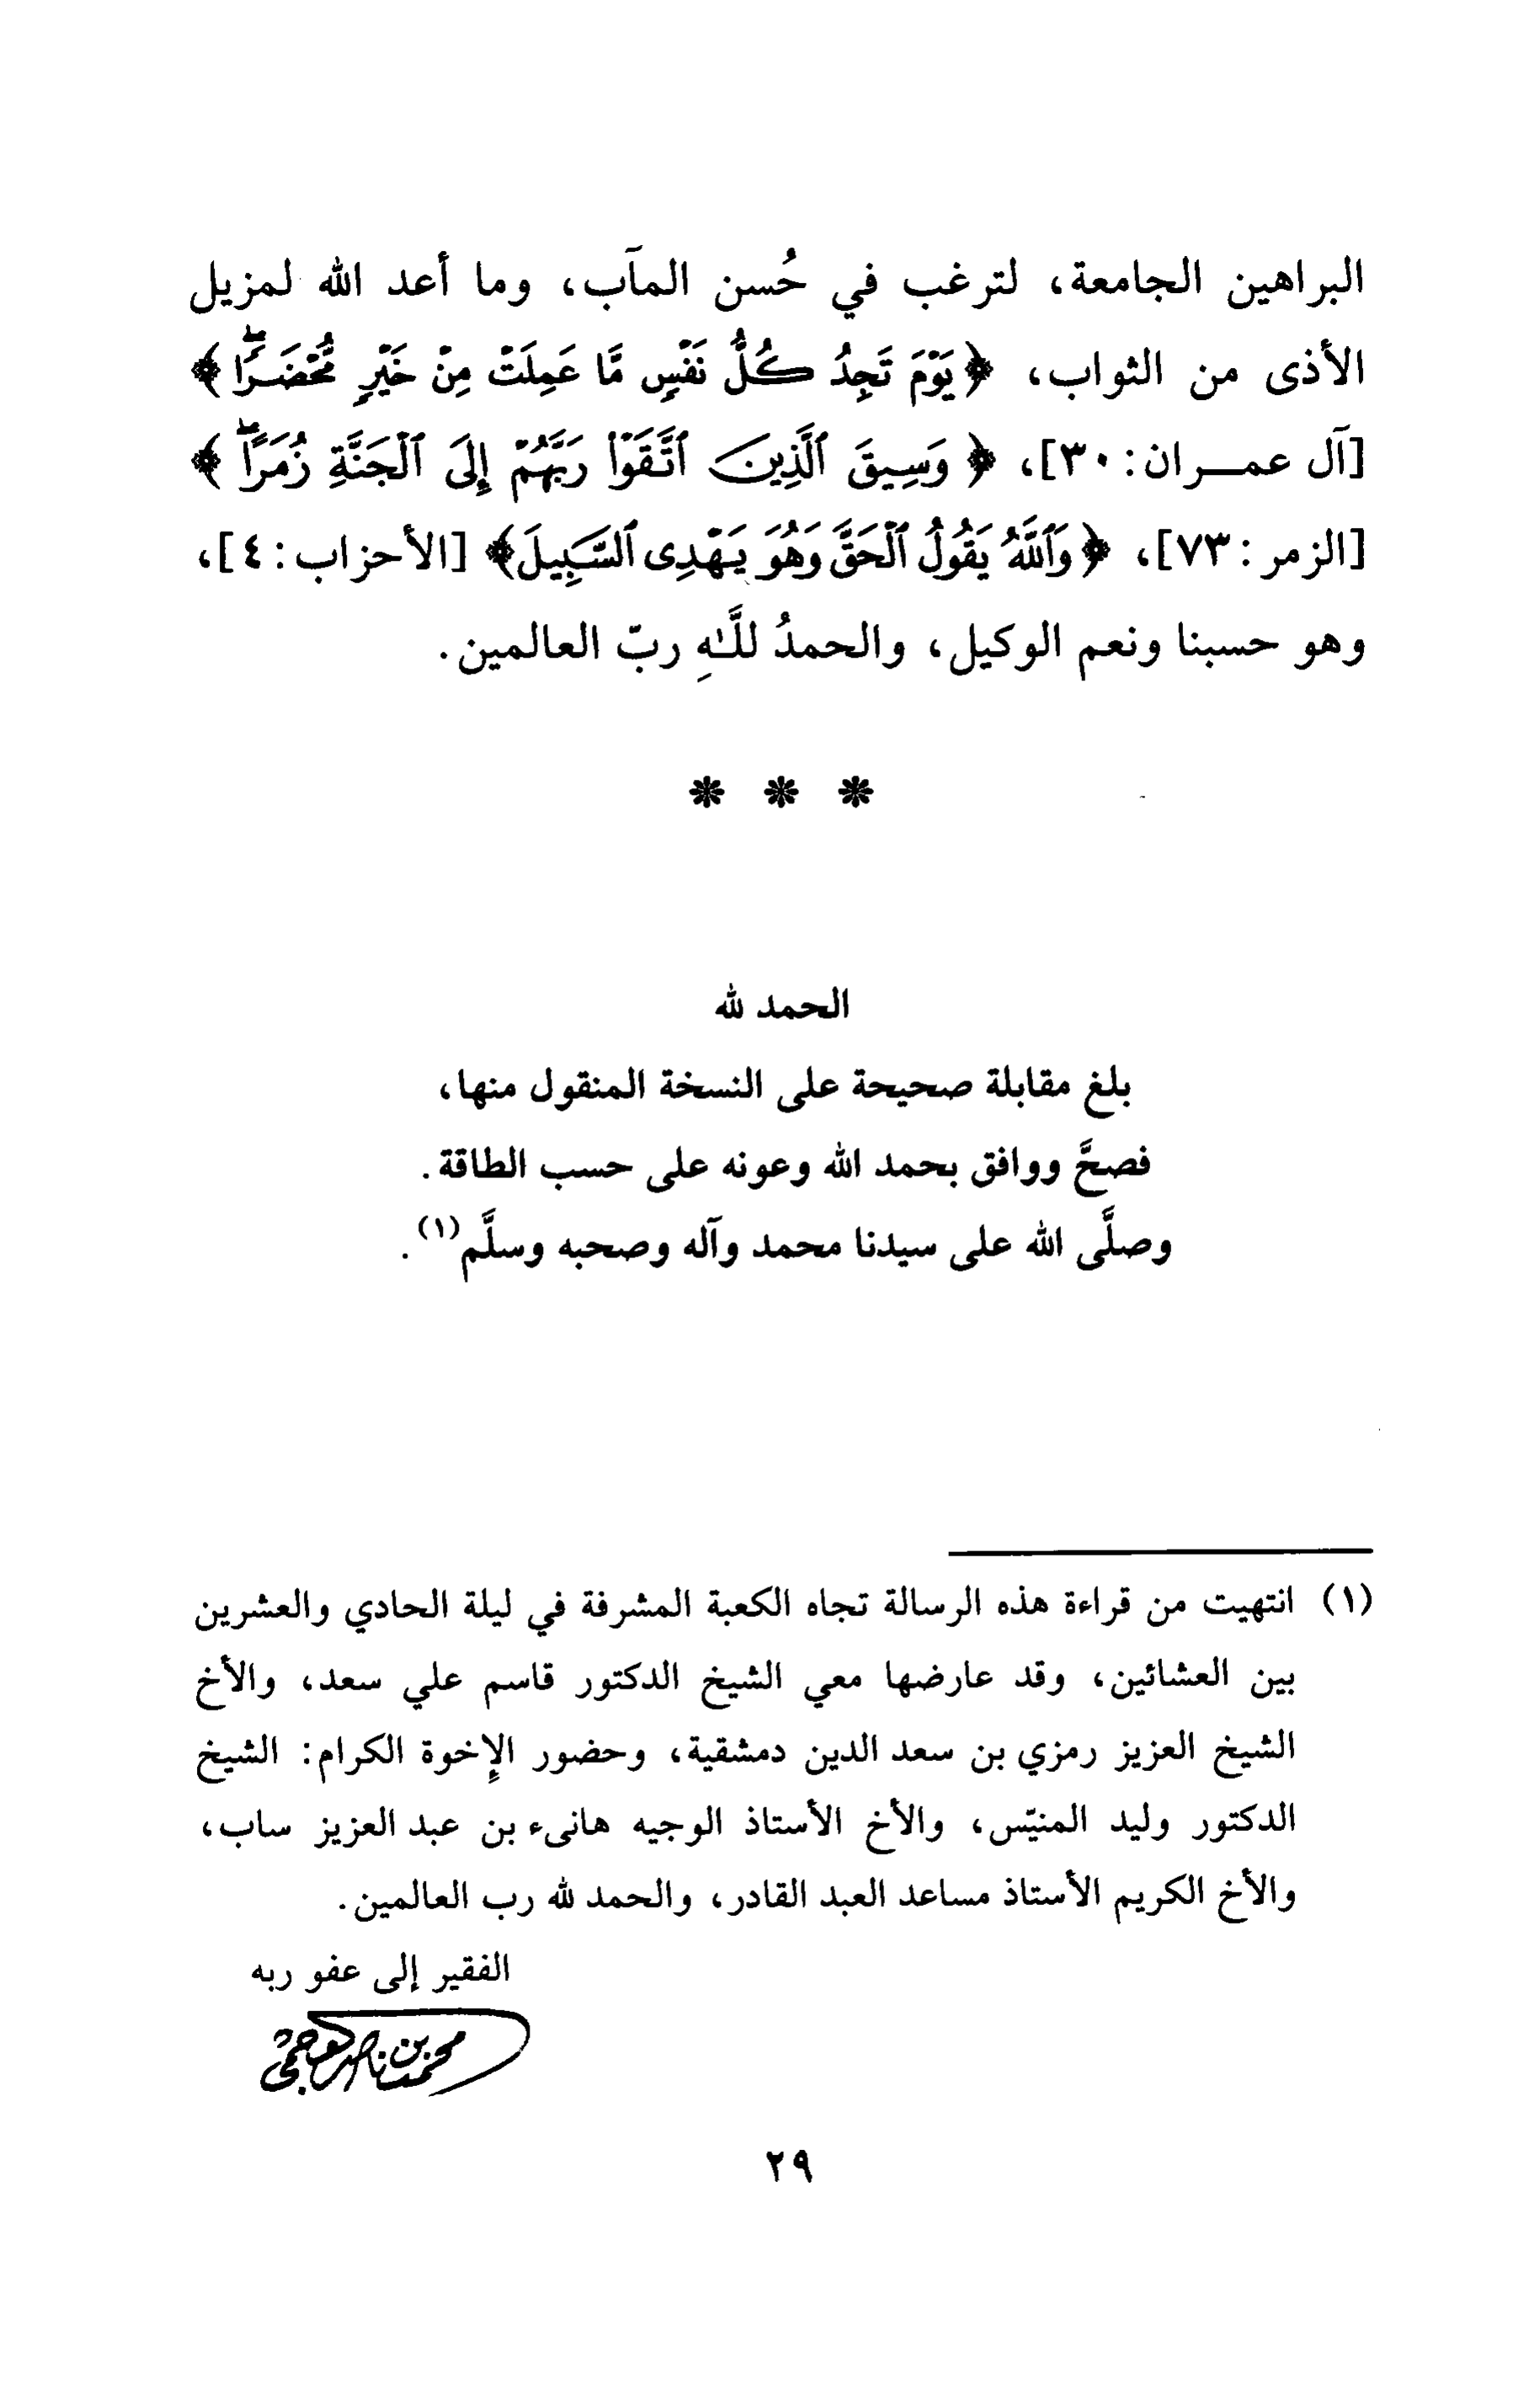 البراهين الجامعة، لترغب في حُسن المآب، وما أعد الله لمزيل
الأذى من الثواب، ﴿يَوْمَ تَجِدُ كُلُّ نَفْسٍ مَّا عَمِلَتْ مِنْ خَيْرٍ مُّحْضَرًا﴾
[آل عمـران: ٣٠]، ﴿وَسِيقَ ٱلَّذِينَ ٱتَّقَوْا۟ رَبَّهُمْ إِلَى ٱلْجَنَّةِ زُمَرًا﴾
[الزمر: ٧٣]، ﴿وَٱللَّهُ يَقُولُ ٱلْحَقَّ وَهُوَ يَهْدِى ٱلسَّبِيلَ﴾ [الأحزاب: ٤]،
وهو حسبنا ونعم الوكيل، والحمدُ للَّـهِ ربّ العالمين.
* * *
الحمد لله
بلغ مقابلة صحيحة على النسخة المنقول منها،
فصحَّ ووافق بحمد الله وعونه على حسب الطاقة.
وصلَّى الله على سيدنا محمد وآله وصحبه وسلَّم(١).
(١) انتهيت من قراءة هذه الرسالة تجاه الكعبة المشرفة في ليلة الحادي والعشرين
بين العشائين، وقد عارضها معي الشيخ الدكتور قاسم علي سعد، والأخ
الشيخ العزيز رمزي بن سعد الدين دمشقية، وحضور الإخوة الكرام: الشيخ
الدكتور وليد المنيّس، والأخ الأستاذ الوجيه هانىء بن عبد العزيز ساب،
والأخ الكريم الأستاذ مساعد العبد القادر، والحمد لله رب العالمين.
الفقير إلى عفو ربه
محمد بن ناصر العجمي
٢٩